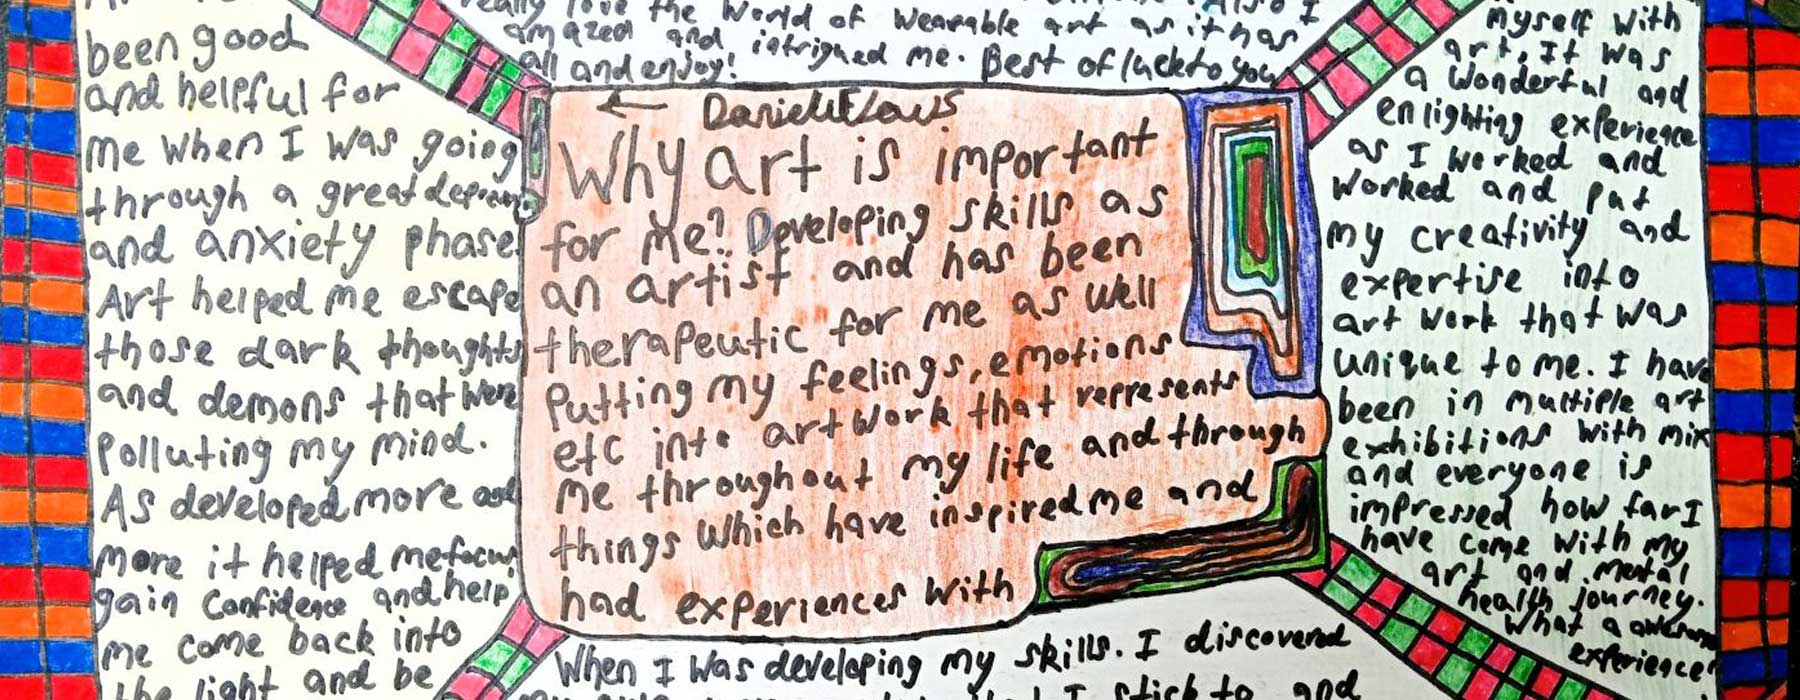 really love the World of Wearable art as it has
amazed and intrigued me. Best of luck to you
all and enjoy!
← Danielle Flaws
Why art is important
for me? Developing skills as
an artist and has been
therapeutic for me as well
Putting my feelings, emotions
etc into artwork that represents
me throughout my life and through
things which have inspired me and
had experiences with
been good
and helpful for
me when I was going
through a great
and anxiety phase.
Art helped me escape
those dark thoughts
and demons that were
Polluting my mind.
As developed more and
more it helped me focus
gain confidence and help
me come back into
the light and be
When I was developing my skills. I discovered
I stick to and
myself with
art, It was
a wonderful and
enlighting experience
as I worked and
worked and put
my creativity and
expertise into
art work that was
unique to me. I have
been in multiple art
exhibitions with mix
and everyone is
impressed how far I
have come with my
art and mental
health journey.
What a awesome
experience